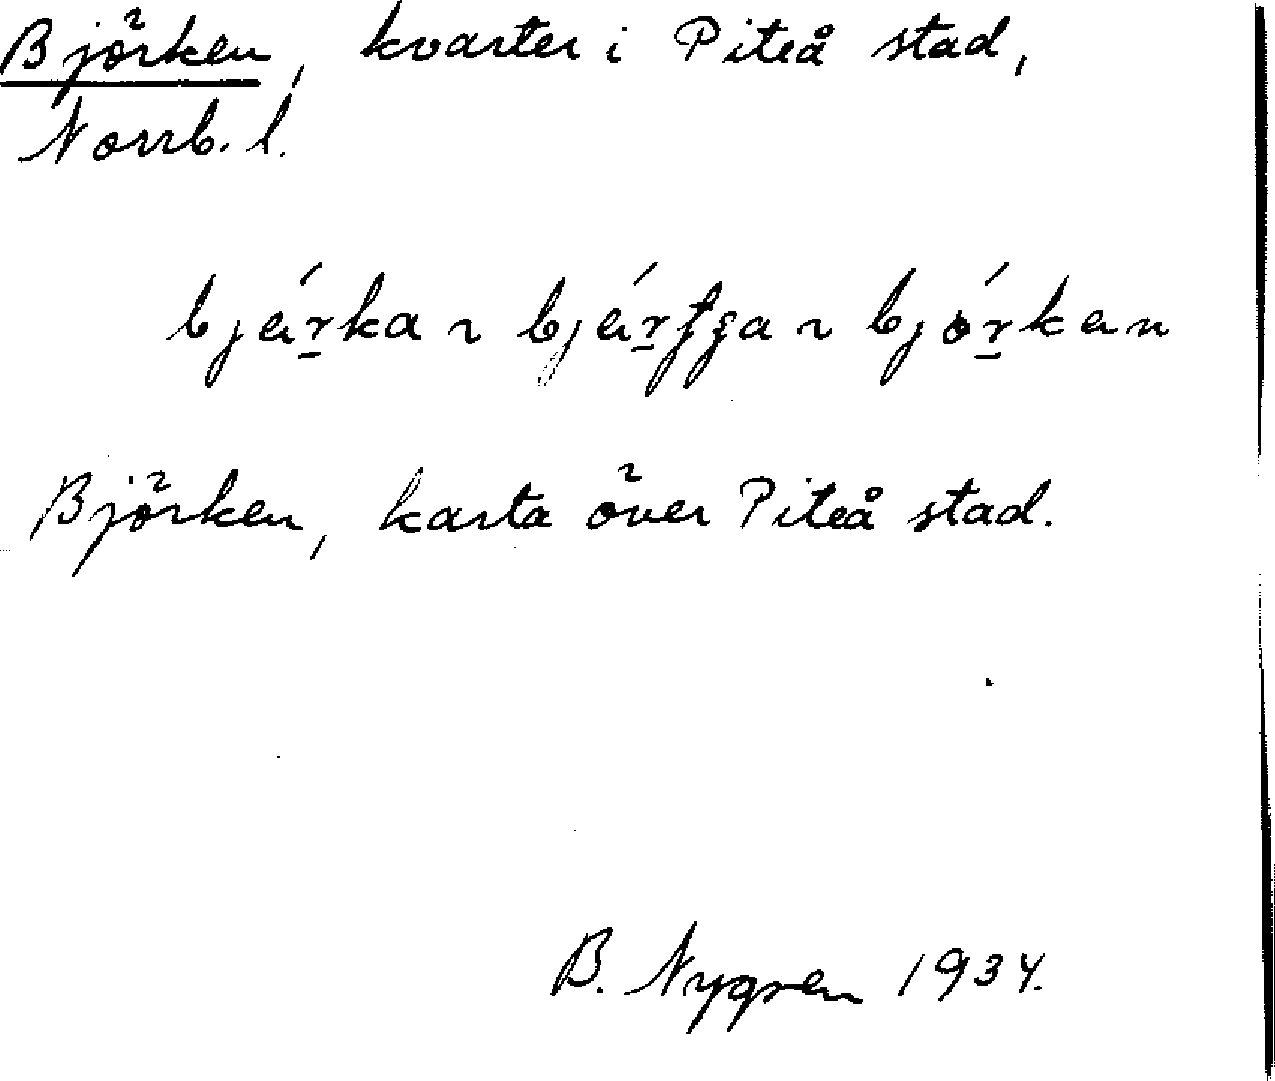 Björken, kvarter i Piteå stad,
Norrb. l.
bjárka ~ ~ bjórkan
Björken, karta över Piteå stad.
B. Nygren 1934.